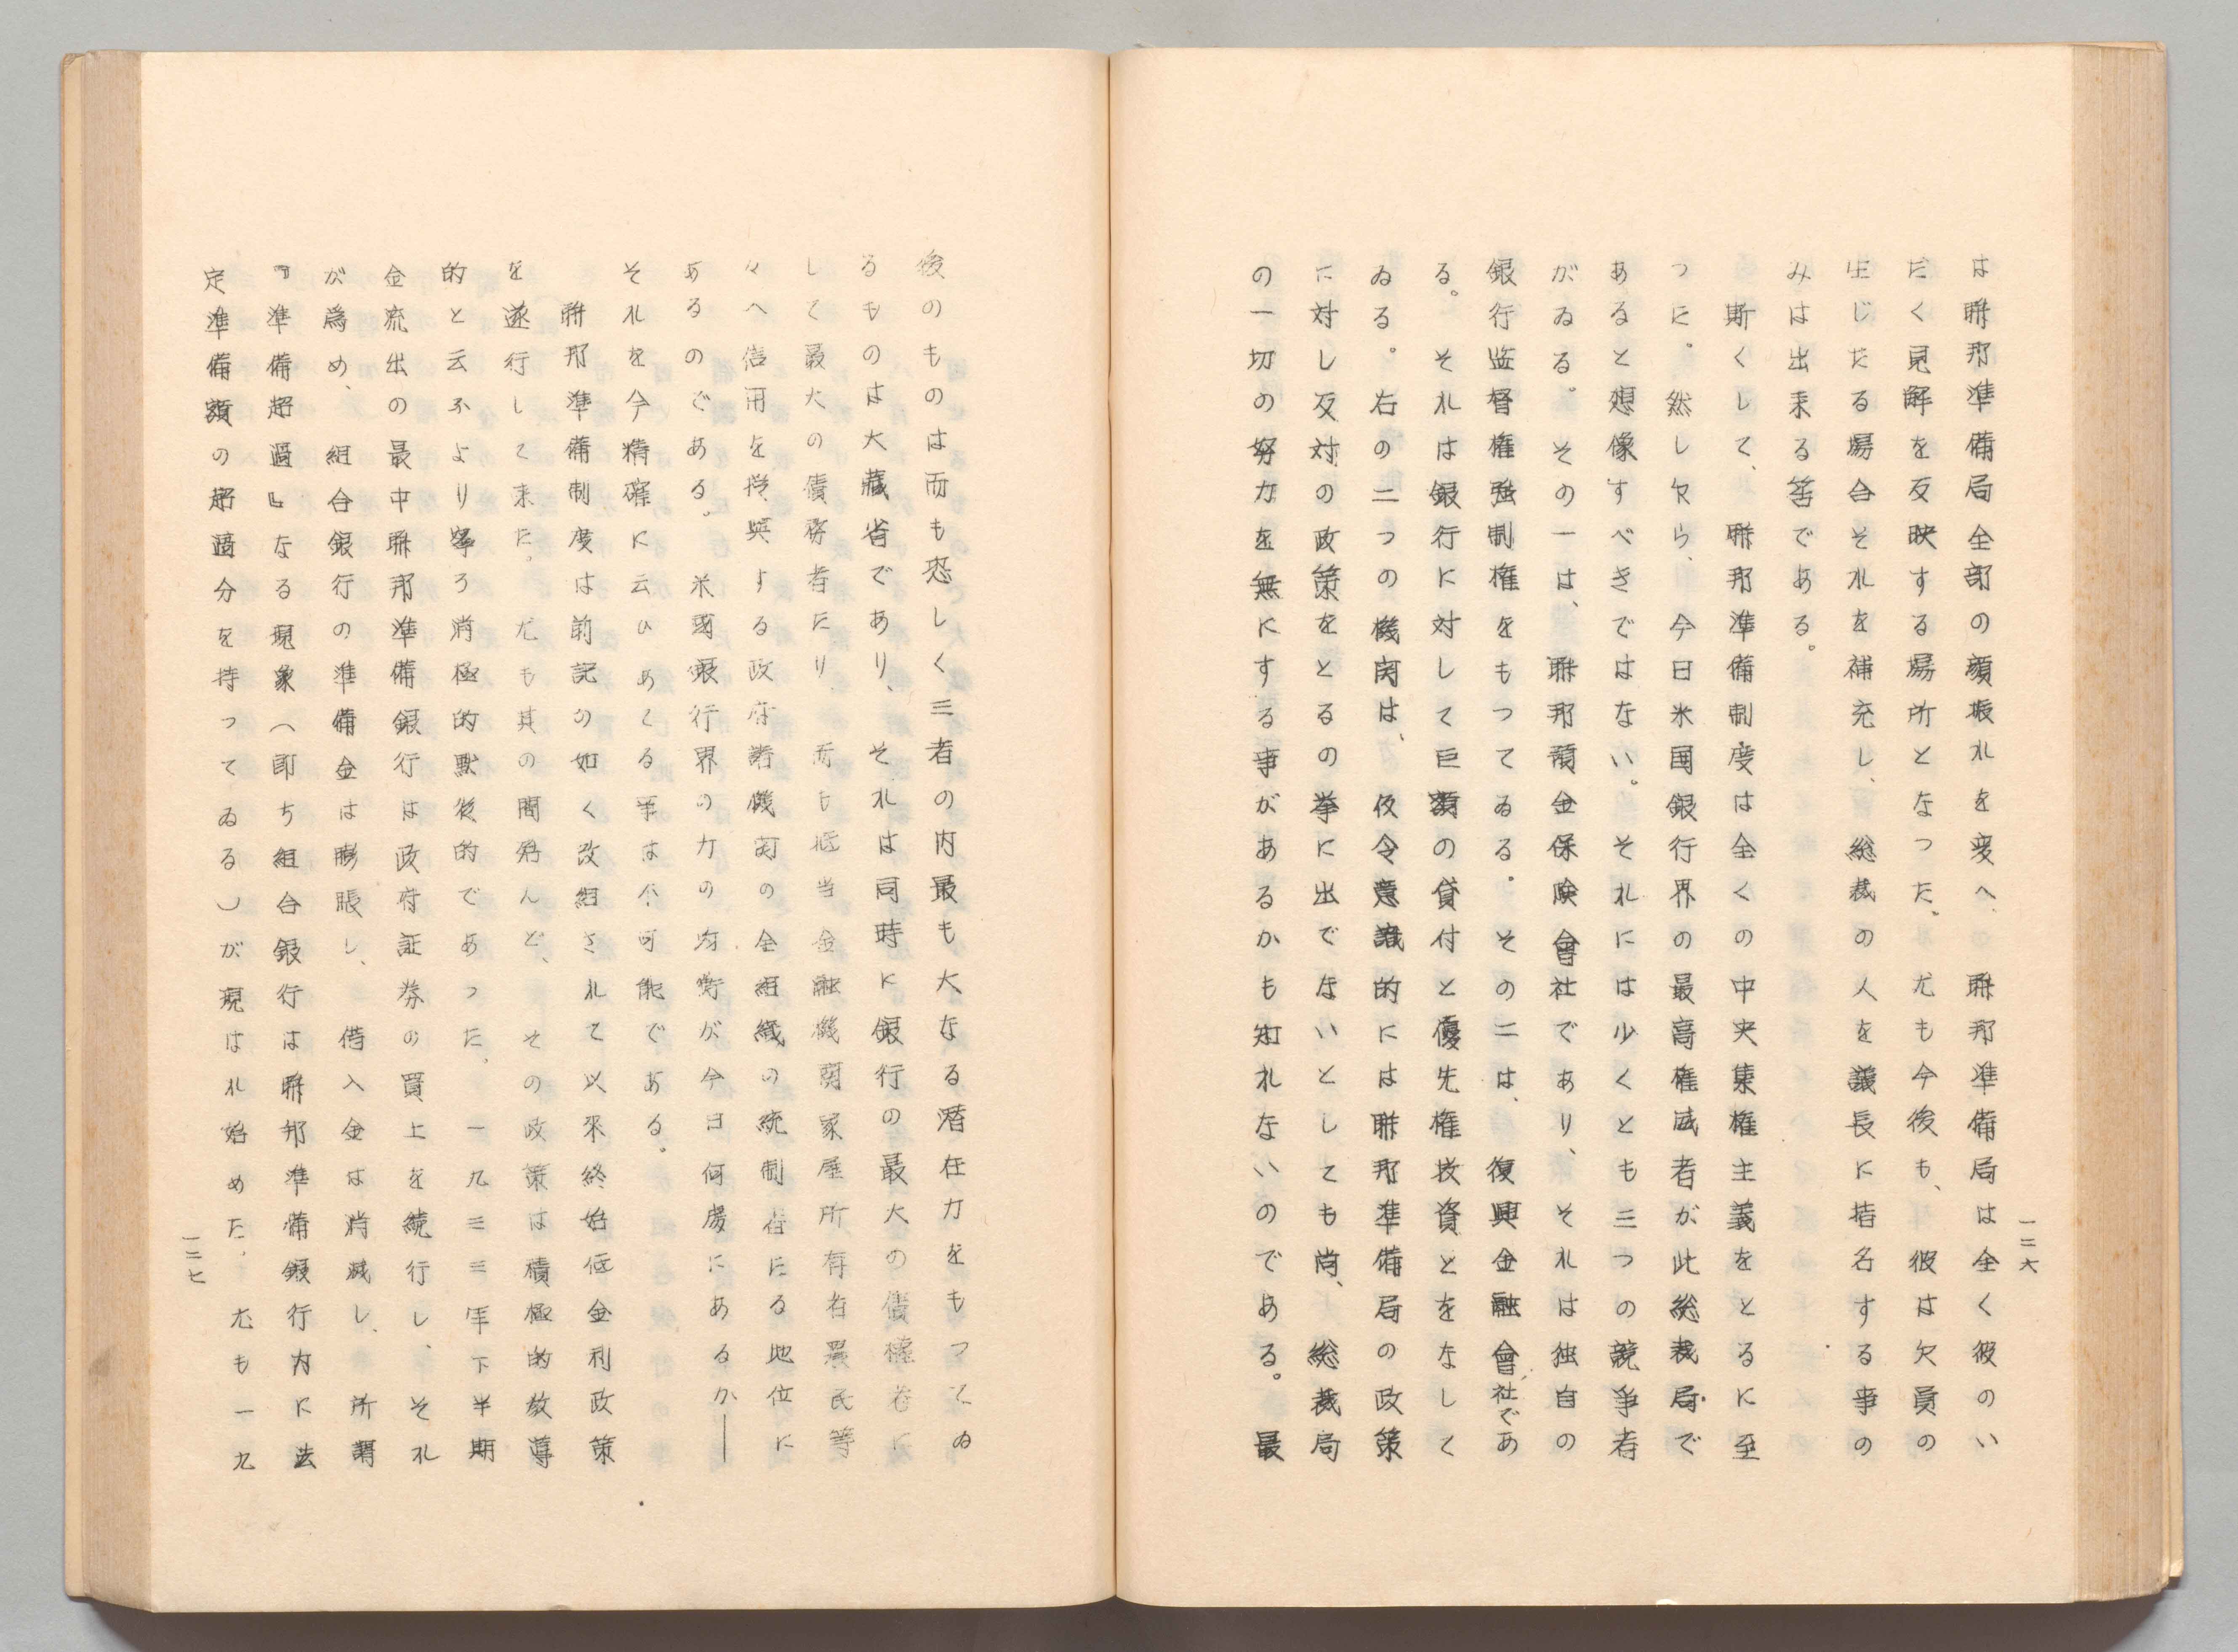 は聯邦準備局全部の顔振れを変へ、聯邦準備局は全く彼のい
だく見解を反映する場所となつた。尤も今後も、彼は欠員の
生じたる場合それを補充し、総裁の人を議長に指名する事の
みは出来る筈である。
斯くして、聯邦準備制度は全くの中央集権主義をとるに至
つた。然し乍ら、今日米国銀行界の最高権威者が此総裁局で
あると想像すべきではない。それには少くとも三つの競争者
がゐる。その一は、聯邦預金保険會社であり、それは独自の
銀行監督権強制権をもつてゐる。その二は、復興金融會社であ
る。それは銀行に対して巨額の貸付と優先権投資とをなして
ゐる。右の二つの機関は、仮令意識的には聯邦準備局の政策
に対し反対の政策をとるの挙に出でないとしても尚、総裁局
の一切の努力を無にする事があるかも知れないのである。最
一二六
後のものは而も恐しく三者の内最も大なる潜在力をもつてゐ
るものは大蔵省であり、それは同時に銀行の最大の債権者に
して最大の債務者たり、而も抵当金融機関家屋所有者農民等
々へ信用を授與する政府諸機関の全組織の統制者たる地位に
あるのである。米國銀行界の力の均衡が今日何處にあるか――
それを今精確に云ひあてる事は不可能である。
聯邦準備制度は前記の如く改組されて以来終始低金利政策
を遂行して来た。尤も其の間殆んど、その政策は積極的教導
的と云ふより寧ろ消極的黙従的であつた。一九三三年下半期
金流出の最中聯邦準備銀行は政府証券の買上を続行し、それ
が為め、組合銀行の準備金は膨脹し、借入金は消滅し、所謂
『準備超過』なる現象（即ち組合銀行は聯邦準備銀行内に法
定準備額の超過分を持つてゐる）が現はれ始めた。尤も一九
一二七